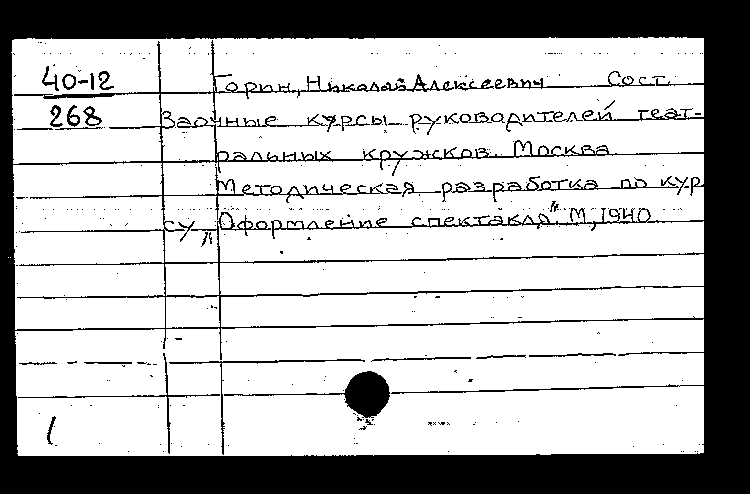 40-12
268
Горин, Николай Алексеевич Сост.
Заочные курсы руководителей теат-
ральных кружков. Москва
Методическая разработка по кур
су „Оформление спектакля" М, 1940